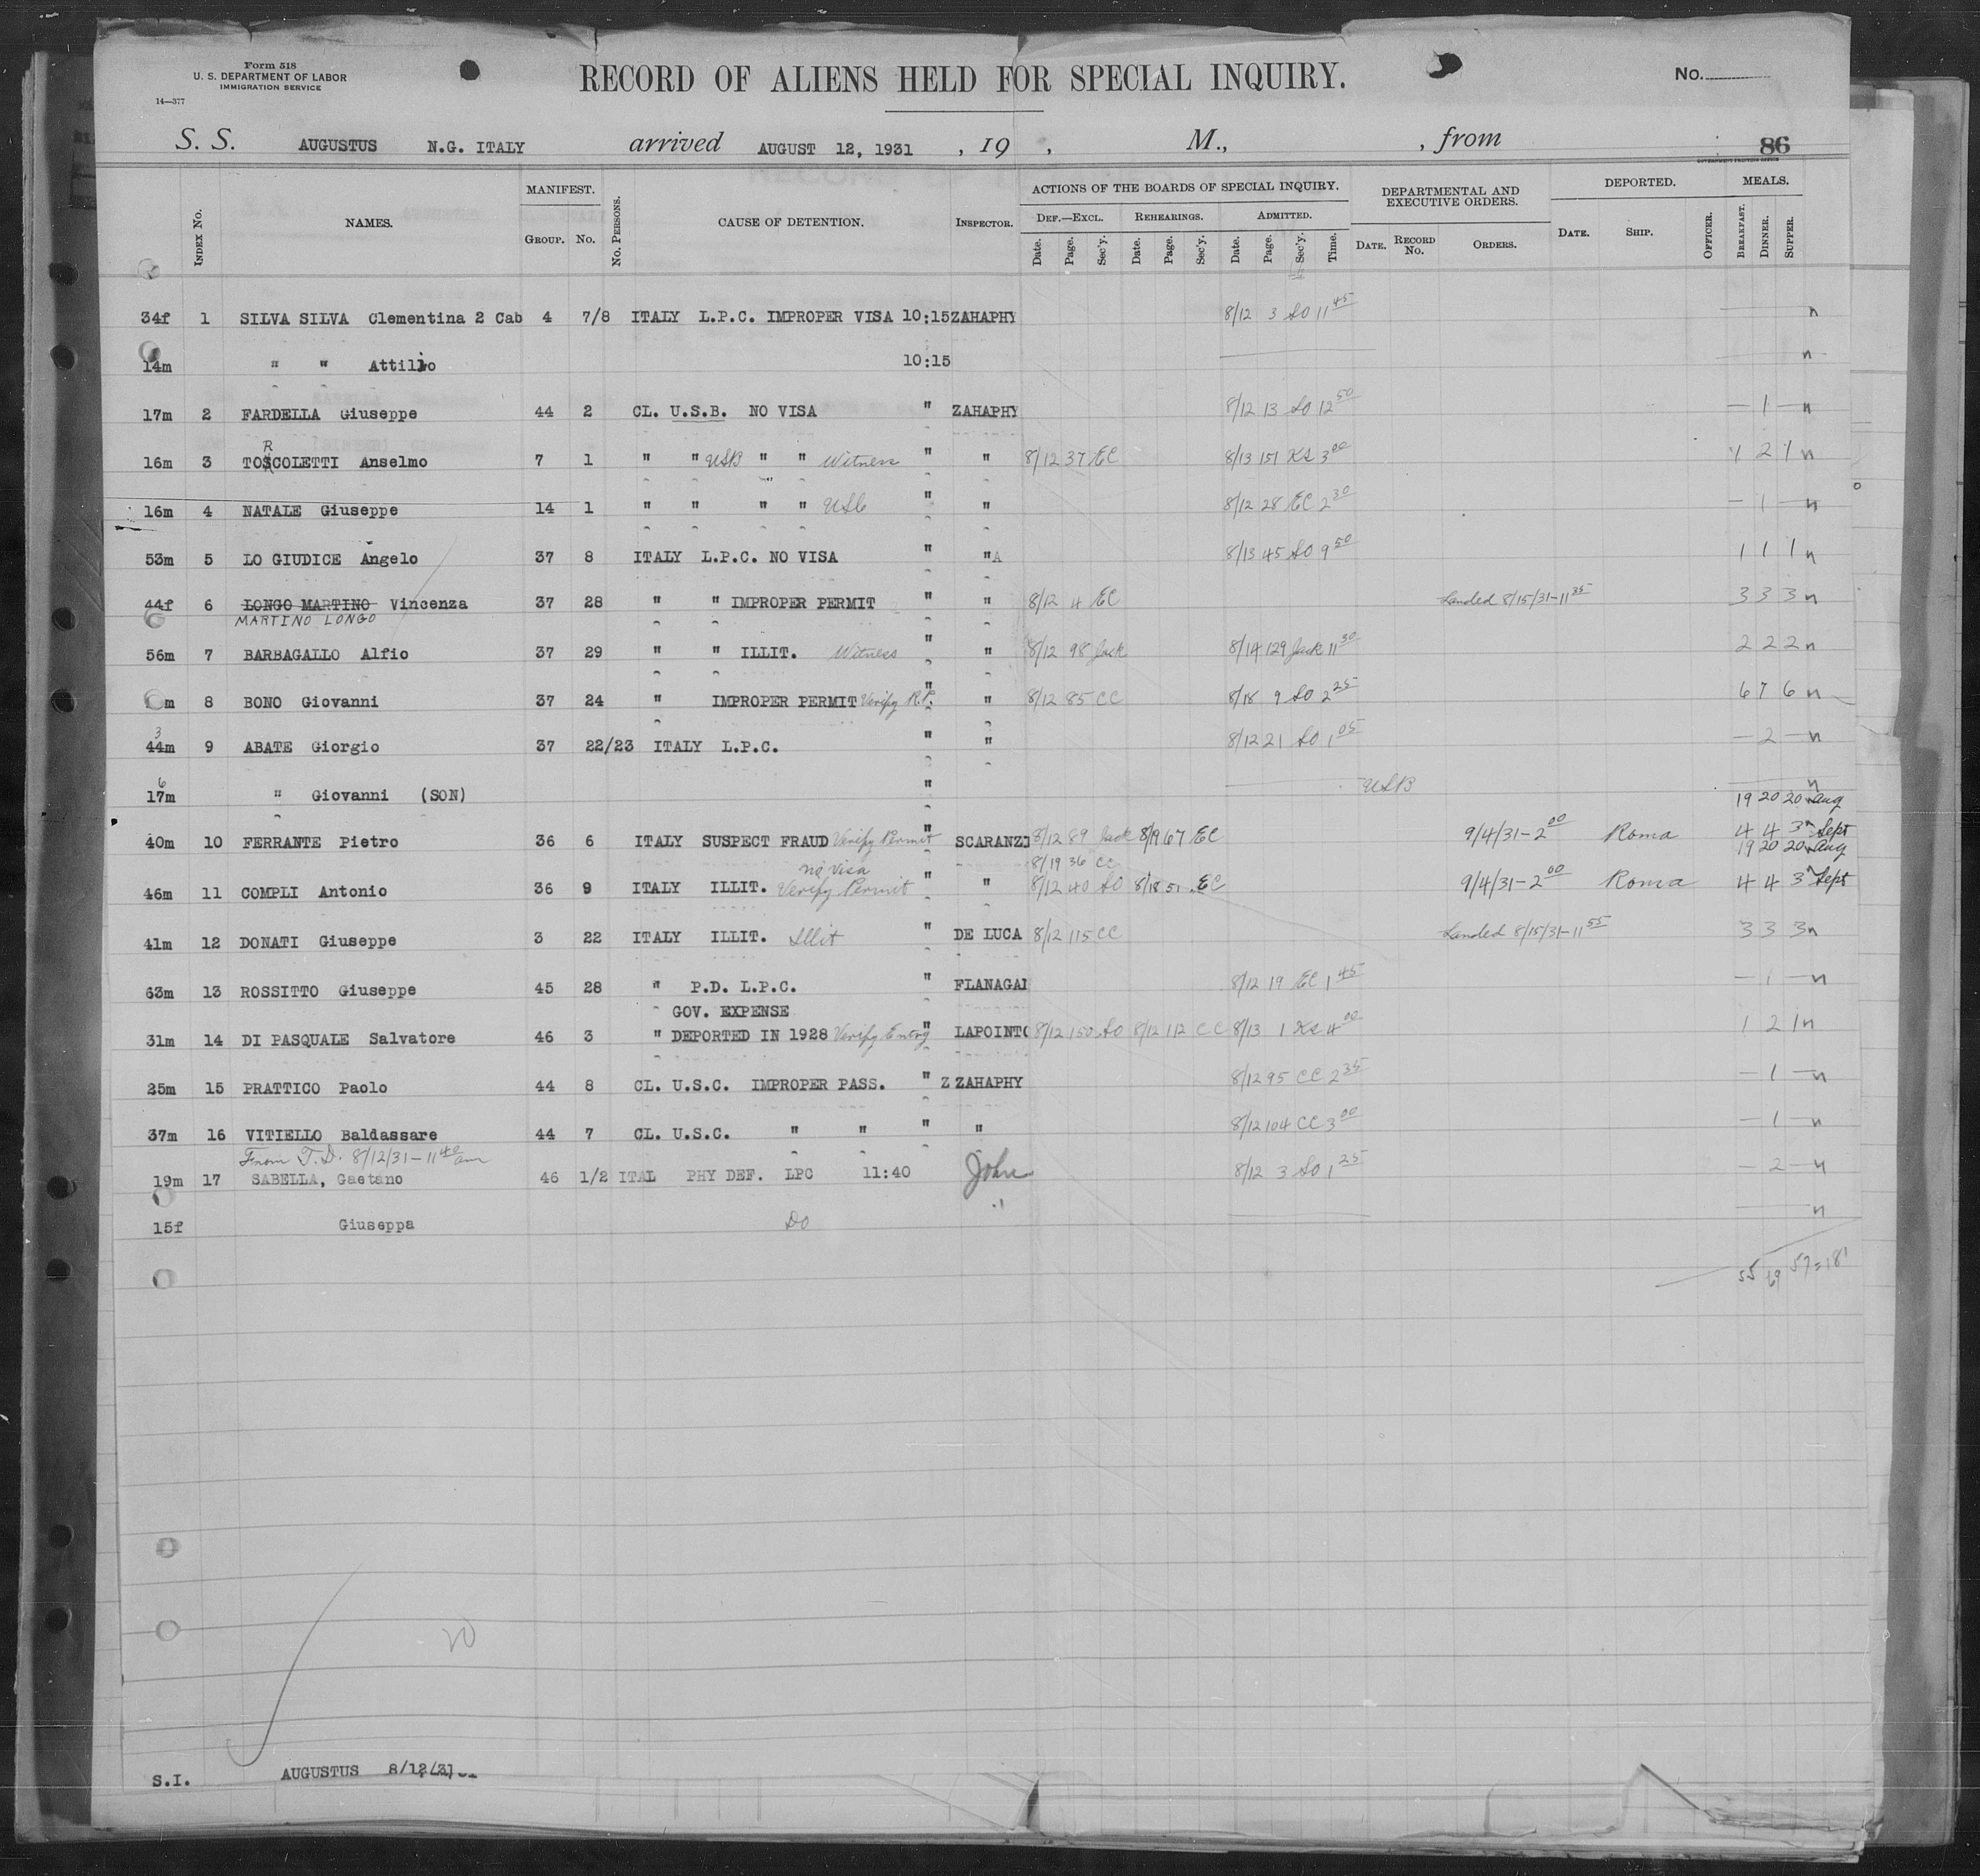 Form 518
U. S. DEPARTMENT OF LABOR
IMMIGRATION SERVICE
14—377
RECORD OF ALIENS HELD FOR SPECIAL INQUIRY.
No.
S. S. AUGUSTUS N.G. ITALY arrived AUGUST 12, 1931 , 19 , M., , from 86
INDEX No. NAMES. MANIFEST. GROUP. No. No. PERSONS. CAUSE OF DETENTION. INSPECTOR. ACTIONS OF THE BOARDS OF SPECIAL INQUIRY. DEF.—EXCL. Date. Page. Sec'y. REHEARINGS. Date. Page. Sec'y. ADMITTED. Date. Page. Sec'y. Time. DEPARTMENTAL AND EXECUTIVE ORDERS. DATE. RECORD No. ORDERS. DEPORTED. DATE. SHIP. OFFICER. MEALS. BREAKFAST. DINNER. SUPPER.
34f 1 SILVA SILVA Clementina 2 Cab 4 7/8 ITALY L.P.C. IMPROPER VISA 10:15 ZAHAPHY 8/12 3 SO 11 45 n
14m " " Attilio 10:15 n
17m 2 FARDELLA Giuseppe 44 2 CL. U.S.B. NO VISA " ZAHAPHY 8/12 13 SO 12 50 — 1 — n
R
16m 3 TOSCOLETTI Anselmo 7 1 " " USB " " Witness " " 8/12 37 EC 8/13 151 KS 3 00 1 2 1 n
16m 4 NATALE Giuseppe 14 1 " " " " USC " " 8/12 28 EC 2 30 — 1 — n
53m 5 LO GIUDICE Angelo 37 8 ITALY L.P.C. NO VISA " " A 8/13 45 SO 9 50 1 1 1 n
44f 6 LONGO MARTINO Vincenza 37 28 " " IMPROPER PERMIT " " 8/12 4 EC Landed 8/15/31-11 35 3 3 3 n
MARTINO LONGO
56m 7 BARBAGALLO Alfio 37 29 " " ILLIT. Witness " " 8/12 98 Jack 8/14 129 Jack 11 30 2 2 2 n
m 8 BONO Giovanni 37 24 " IMPROPER PERMIT Verify R.P. " " 8/12 85 CC 8/18 9 SO 2 25 6 7 6 n
3
44m 9 ABATE Giorgio 37 22/23 ITALY L.P.C. " " 8/12 21 SO 1 05 — 2 — n
6
17m " Giovanni (SON) " USB n
19 20 20 n Aug
40m 10 FERRANTE Pietro 36 6 ITALY SUSPECT FRAUD Verify Permit " SCARANZI 8/12 89 Jack 8/19 67 EC 9/4/31-2 00 Roma 4 4 3 n Sept
no visa 8/19 36 CC 19 20 20 n Aug
46m 11 COMPLI Antonio 36 9 ITALY ILLIT. Verify Permit " " 8/12 40 SO 8/18 51 EC 9/4/31-2 00 Roma 4 4 3 n Sept
41m 12 DONATI Giuseppe 3 22 ITALY ILLIT. Illit " DE LUCA 8/12 115 CC Landed 8/15/31-11 55 3 3 3 n
63m 13 ROSSITTO Giuseppe 45 28 " P.D. L.P.C. " FLANAGAN 8/12 19 EC 1 45 — 1 — n
GOV. EXPENSE
31m 14 DI PASQUALE Salvatore 46 3 " DEPORTED IN 1928 Verify Entry " LAPOINTE 8/12 150 SO 8/12 112 CC 8/13 1 KS 4 00 1 2 1 n
25m 15 PRATTICO Paolo 44 8 CL. U.S.C. IMPROPER PASS. " Z ZAHAPHY 8/12 95 CC 2 35 — 1 — n
37m 16 VITIELLO Baldassare 44 7 CL. U.S.C. " " " " 8/12 104 CC 3 00 — 1 — n
From T.D. 8/12/31-11 40 am
19m 17 SABELLA, Gaetano 46 1/2 ITAL PHY DEF. LPC 11:40 John 8/12 3 SO 1 25 — 2 — n
15f Giuseppa DO " n
55 69 57=181
20
S.I. AUGUSTUS 8/12/31